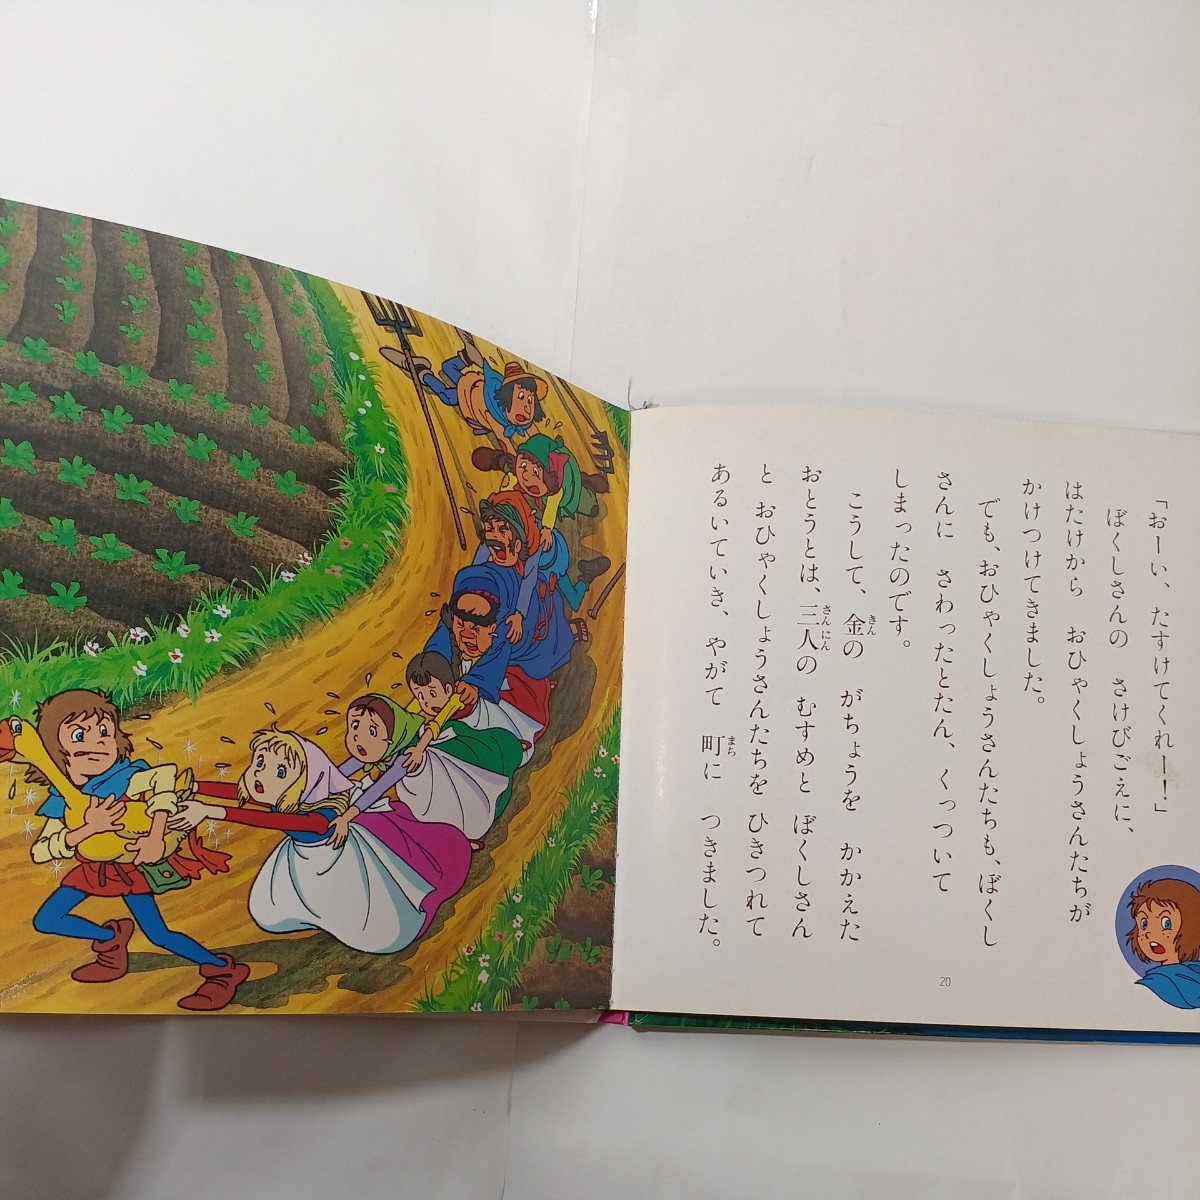 「おーい、たすけてくれー！」
ぼくしさんの さけびごえに、
はたけから おひゃくしょうさんたちが
かけつけてきました。
でも、おひゃくしょうさんたちも、ぼくし
さんに さわったとたん、くっついて
しまったのです。
こうして、金の がちょうを かかえた
おとうとは、三人の むすめと ぼくしさん
と おひゃくしょうさんたちを ひきつれて
あるいていき、やがて 町に つきました。
きん
さんにん
まち
20